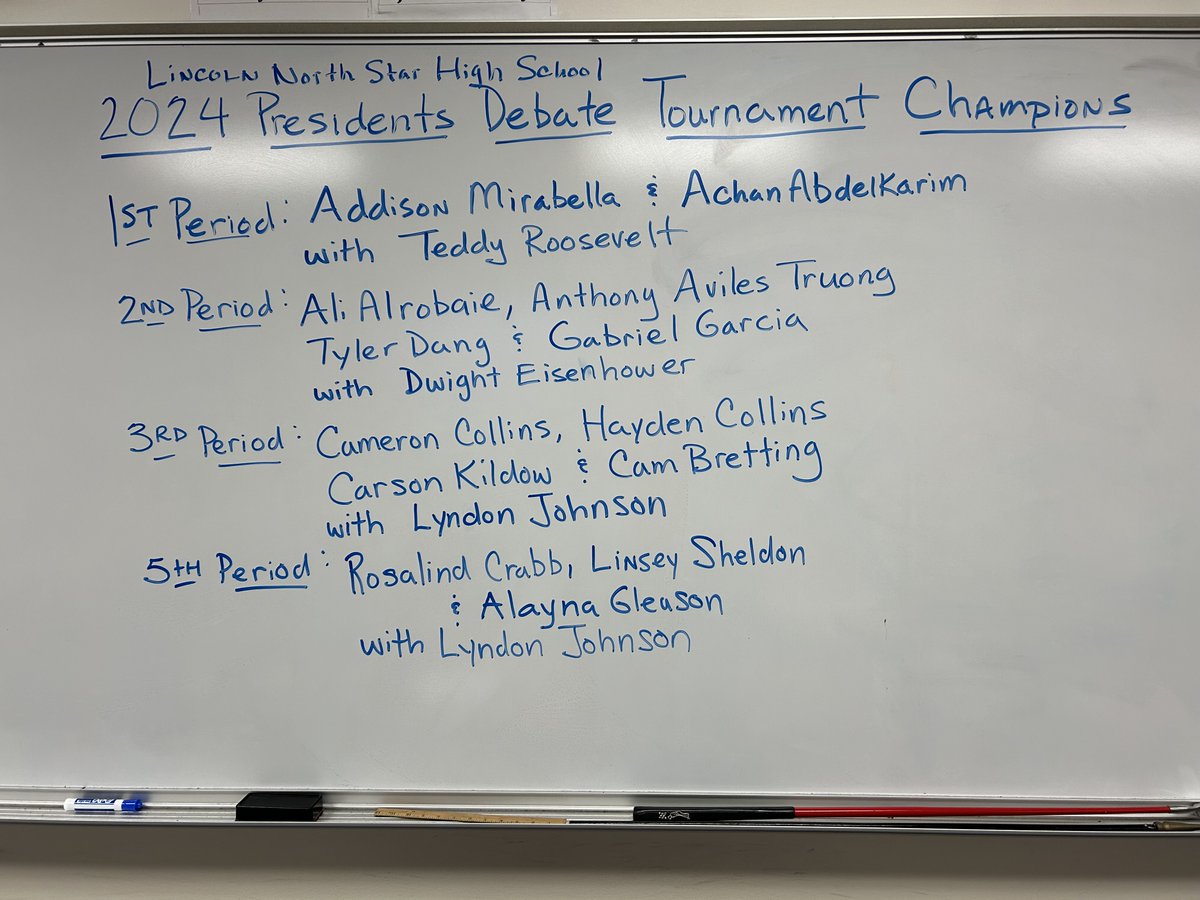 Lincoln North Star High School
2024 Presidents Debate Tournament Champions
1st Period: Addison Mirabella & Achan Abdelkarim
with Teddy Roosevelt
2nd Period: Ali Alrobaie, Anthony Aviles Truong
Tyler Dang & Gabriel Garcia
with Dwight Eisenhower
3rd Period: Cameron Collins, Hayden Collins
Carson Kildow & Cam Bretting
with Lyndon Johnson
5th Period: Rosalind Crabb, Linsey Sheldon
& Alayna Gleason
with Lyndon Johnson
EXPO